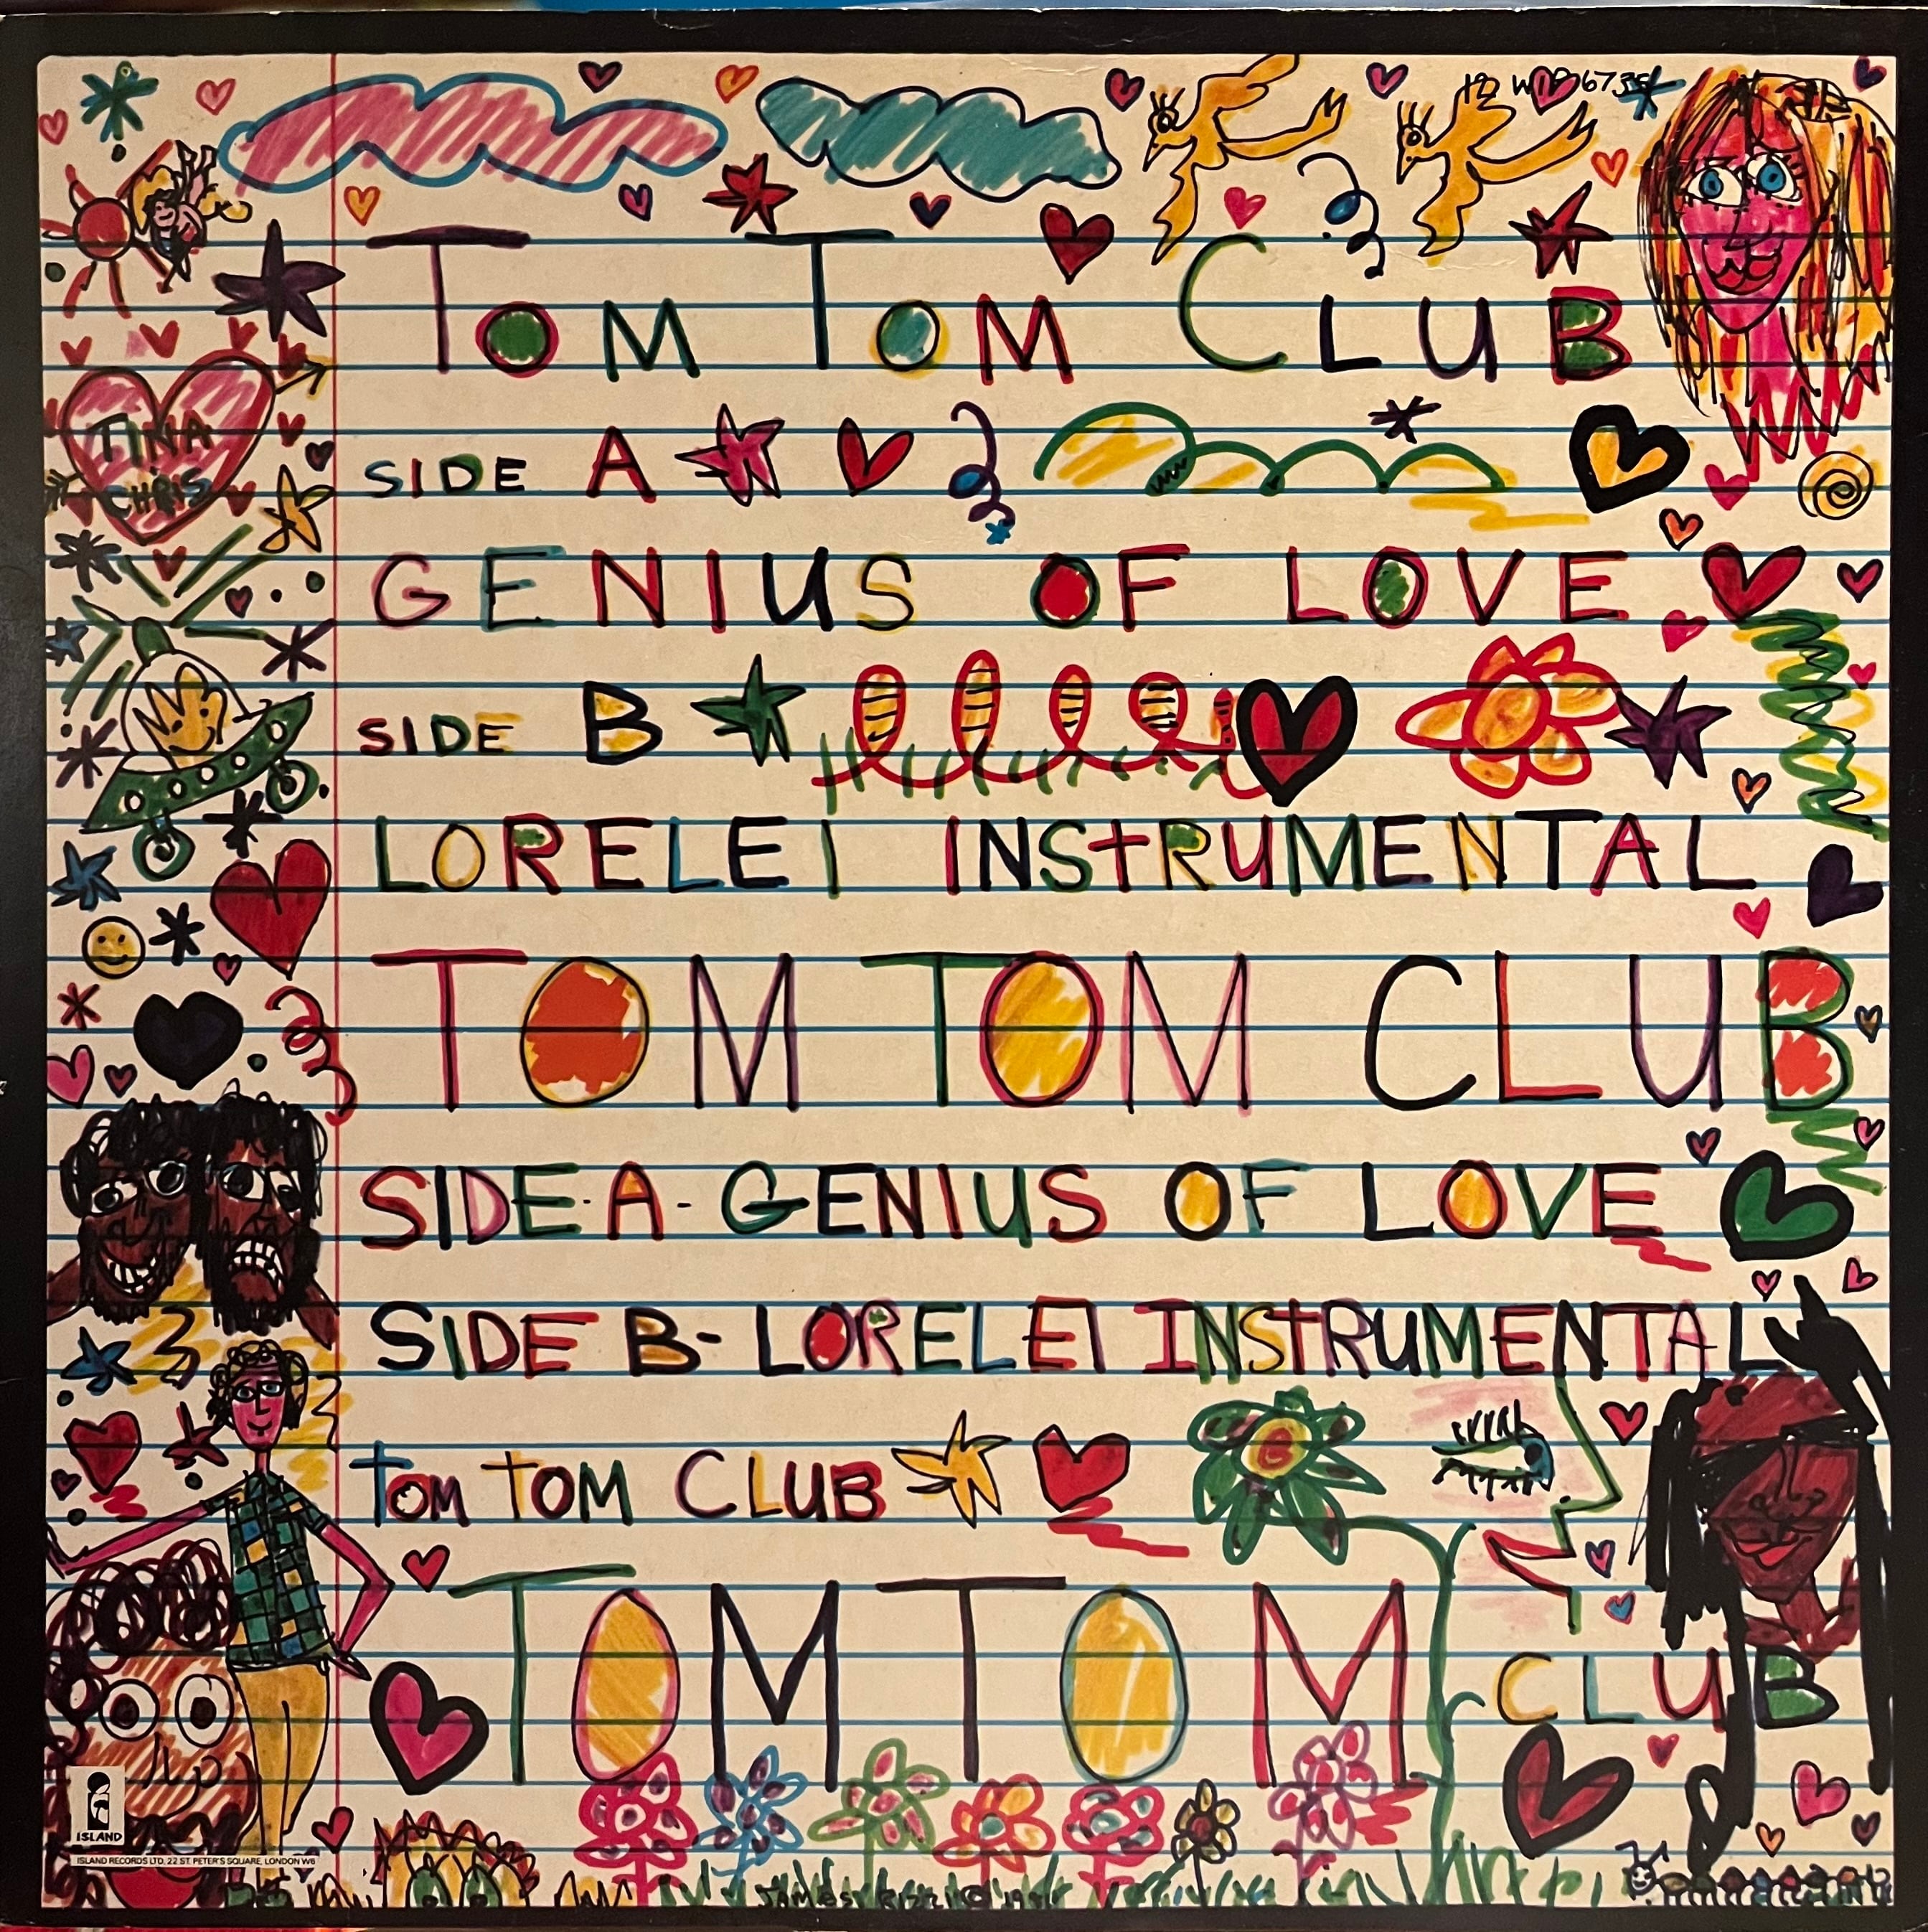 12 WIP 6735
TOM TOM CLUB
SIDE A
TINA
CHRIS
GENIUS OF LOVE
SIDE B
LORELEI INSTRUMENTAL
TOM TOM CLUB
SIDE-A-GENIUS OF LOVE
SIDE B-LORELEI INSTRUMENTAL
TOM TOM CLUB
TOM TOM CLUB
ISLAND
ISLAND RECORDS LTD, 22 ST. PETER'S SQUARE, LONDON W6
JAMES RIZZI ©